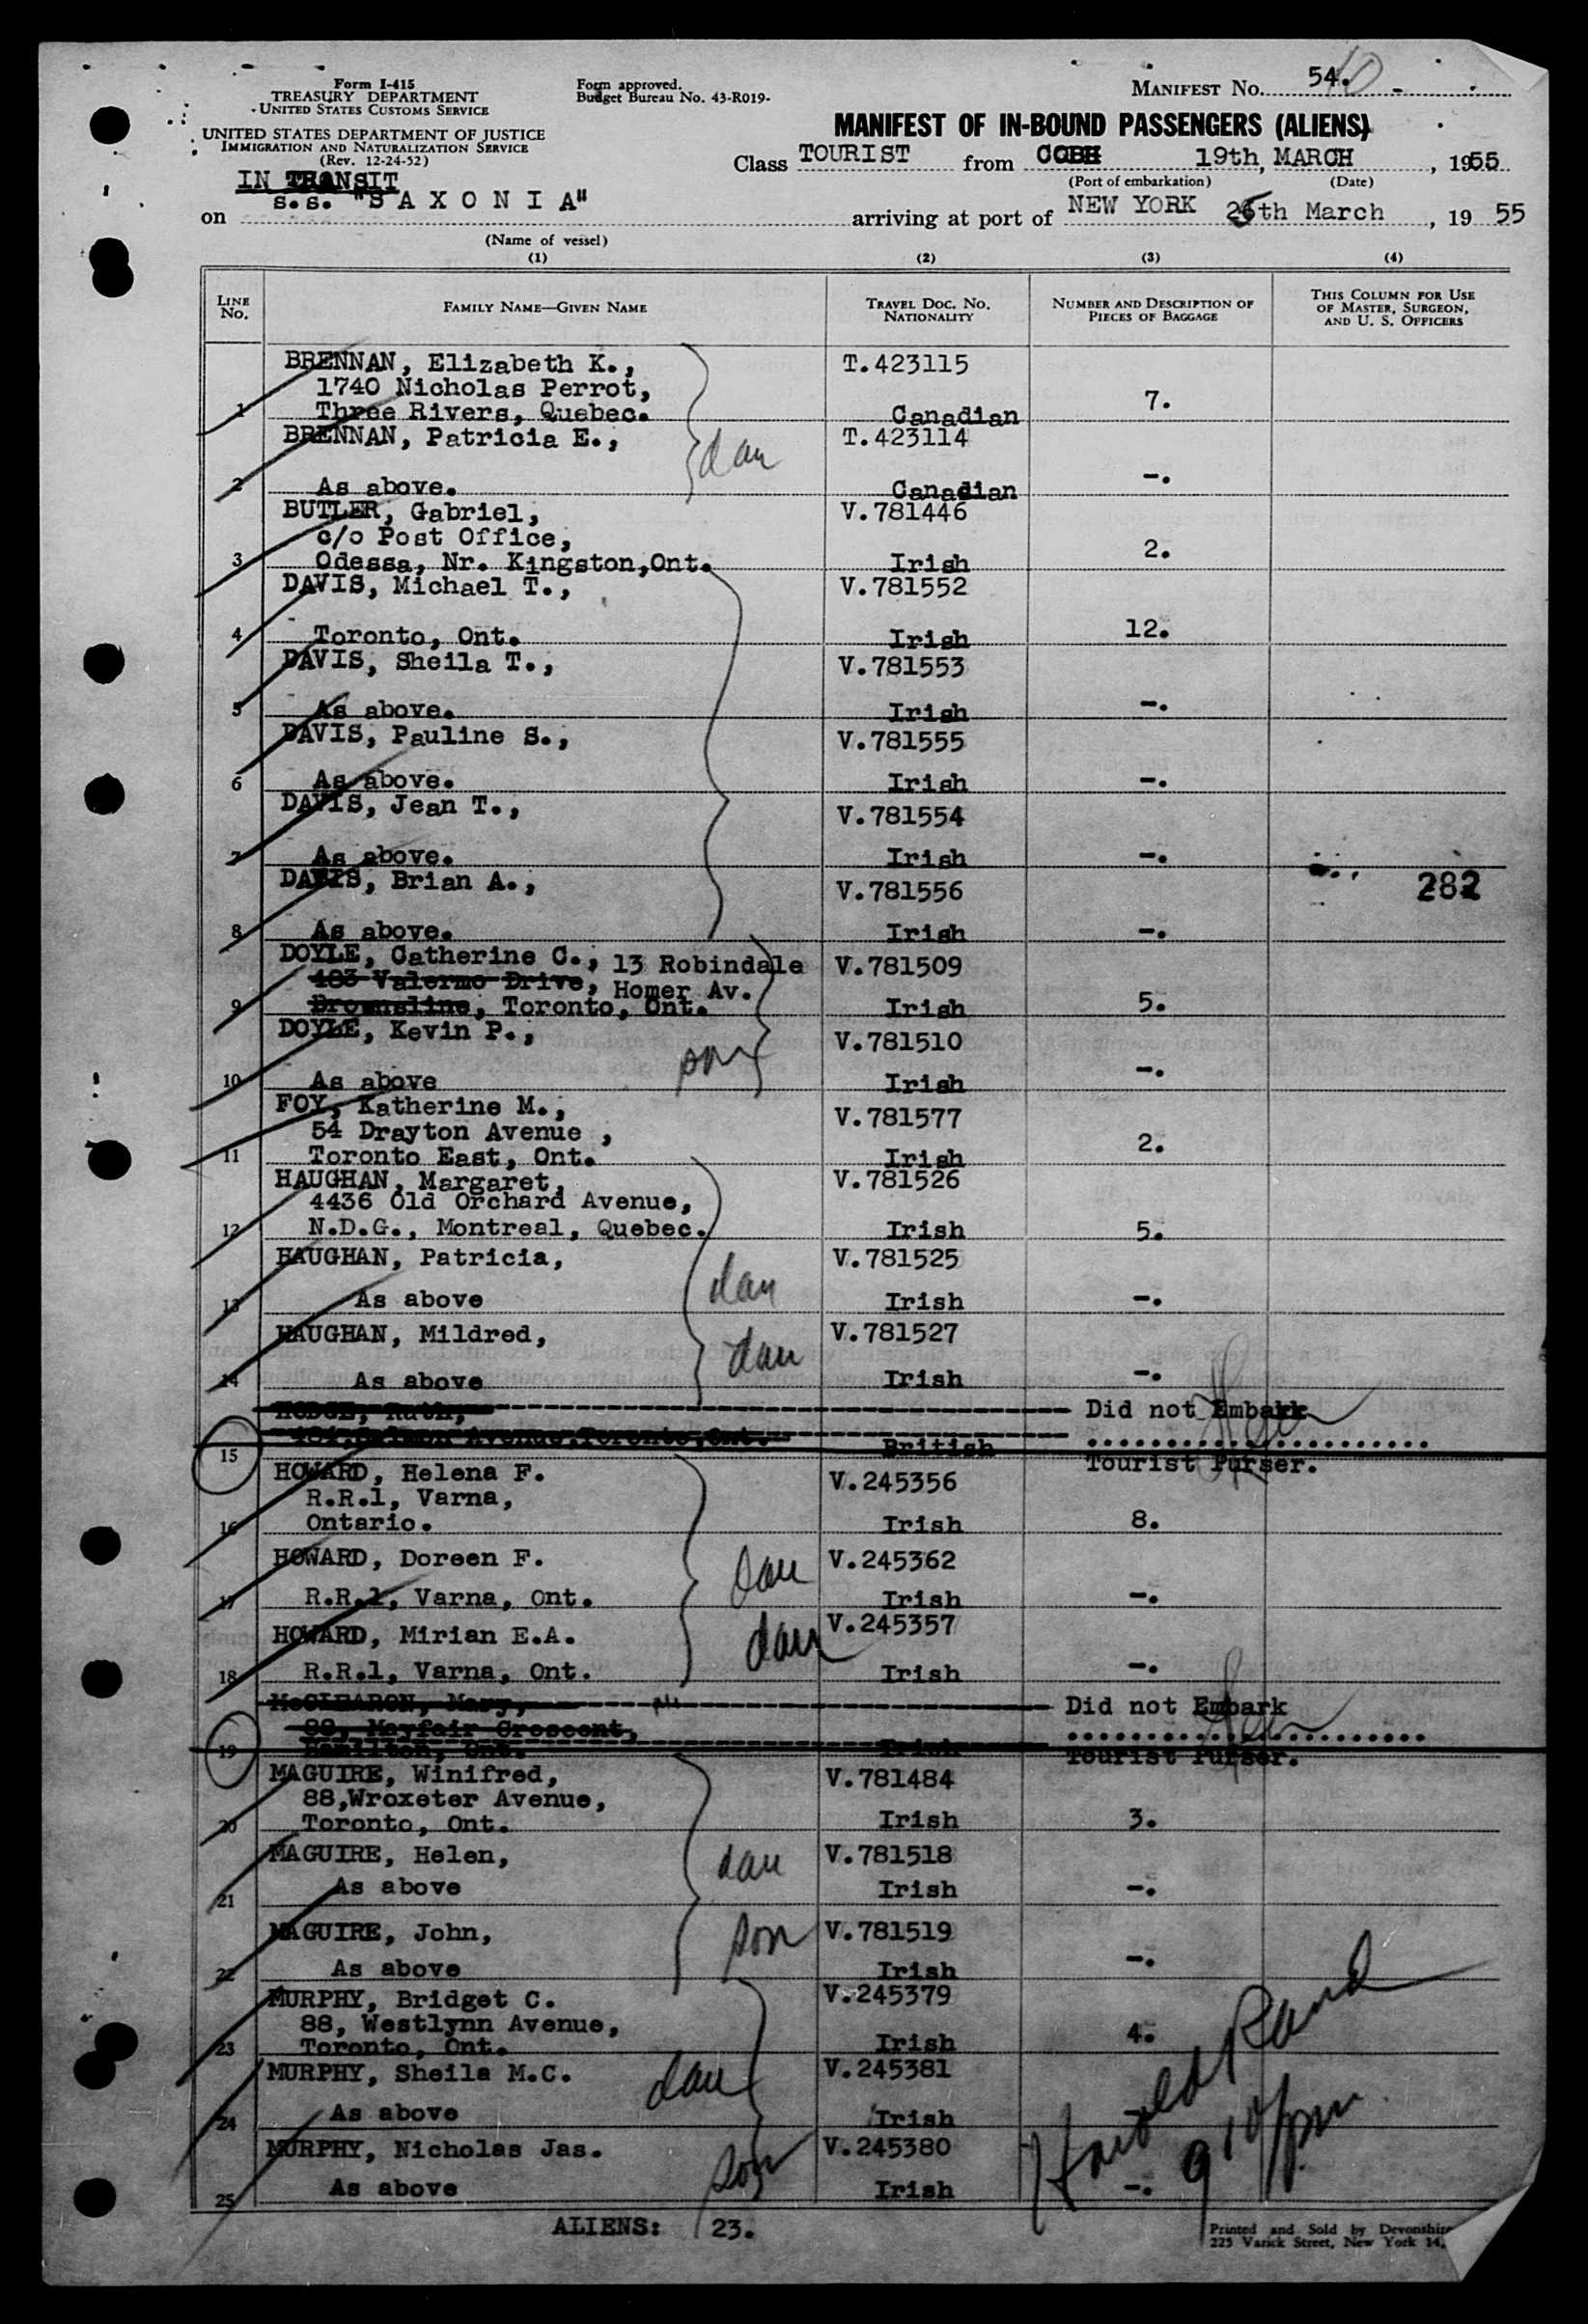 Form I-415
TREASURY DEPARTMENT
UNITED STATES CUSTOMS SERVICE
UNITED STATES DEPARTMENT OF JUSTICE
IMMIGRATION AND NATURALIZATION SERVICE
(Rev. 12-24-52)
Form approved.
Budget Bureau No. 43-R019-
MANIFEST NO. 54.
MANIFEST OF IN-BOUND PASSENGERS (ALIENS)
Class TOURIST from COBH 19th, MARCH, 1955
(Port of embarkation) (Date)
IN TRANSIT
on s.s. "S A X O N I A" arriving at port of NEW YORK 26th March, 19 55
(Name of vessel)
(1) (2) (3) (4)
LINE NO. FAMILY NAME—GIVEN NAME TRAVEL DOC. NO. NATIONALITY NUMBER AND DESCRIPTION OF PIECES OF BAGGAGE THIS COLUMN FOR USE OF MASTER, SURGEON, AND U. S. OFFICERS
BRENNAN, Elizabeth K., T.423115
1740 Nicholas Perrot,
1 Three Rivers, Quebec. Canadian 7.
BRENNAN, Patricia E., T.423114
dau
2 As above. Canadian -.
BUTLER, Gabriel, V.781446
c/o Post Office,
3 Odessa, Nr. Kingston,Ont. Irish 2.
DAVIS, Michael T., V.781552
4 Toronto, Ont. Irish 12.
DAVIS, Sheila T., V.781553
5 As above. Irish -.
DAVIS, Pauline S., V.781555
6 As above. Irish -.
DAVIS, Jean T., V.781554
7 As above. Irish -.
DAVIS, Brian A., V.781556 282
8 As above. Irish -.
DOYLE, Catherine C., 13 Robindale V.781509
183 Valermo Drive, Homer Av.
9 Brownsline, Toronto, Ont. Irish 5.
DOYLE, Kevin P., V.781510
son
10 As above Irish -.
FOY, Katherine M., V.781577
54 Drayton Avenue ,
11 Toronto East, Ont. Irish 2.
HAUGHAN, Margaret, V.781526
4436 Old Orchard Avenue,
12 N.D.G., Montreal, Quebec. Irish 5.
HAUGHAN, Patricia, V.781525
dau
13 As above Irish -.
HAUGHAN, Mildred, V.781527
dau
14 As above Irish -.
HODGE, Ruth, Did not Embark
Avenue,Toronto,Ont.
15 British Tourist Purser.
HOWARD, Helena F. V.245356
R.R.1, Varna,
16 Ontario. Irish 8.
HOWARD, Doreen F. dau V.245362
17 R.R.1, Varna, Ont. Irish -.
HOWARD, Mirian E.A. dau V.245357
18 R.R.1, Varna, Ont. Irish -.
Mary, Did not Embark
88, Mayfair Crescent,
19 Hamilton, Ont. Irish Tourist Purser.
MAGUIRE, Winifred, V.781484
88,Wroxeter Avenue,
20 Toronto, Ont. Irish 3.
MAGUIRE, Helen, dau V.781518
21 As above Irish -.
MAGUIRE, John, son V.781519
22 As above Irish -.
MURPHY, Bridget C. V.245379
88, Westlynn Avenue,
23 Toronto, Ont. Irish 4.
MURPHY, Sheila M.C. dau V.245381
24 As above Irish
MURPHY, Nicholas Jas. son V.245380
25 As above Irish -.
Harold Rand
910 pm
ALIENS: 23.
Printed and Sold by Devonshire
225 Varick Street, New York 14,